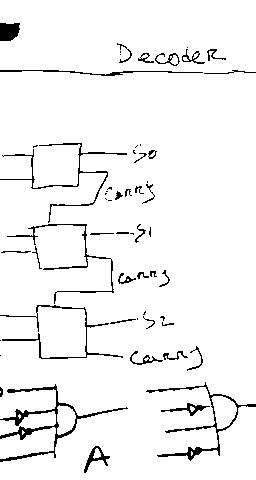 Decoder
S0
Carry
S1
Carry
S2
Carry
A